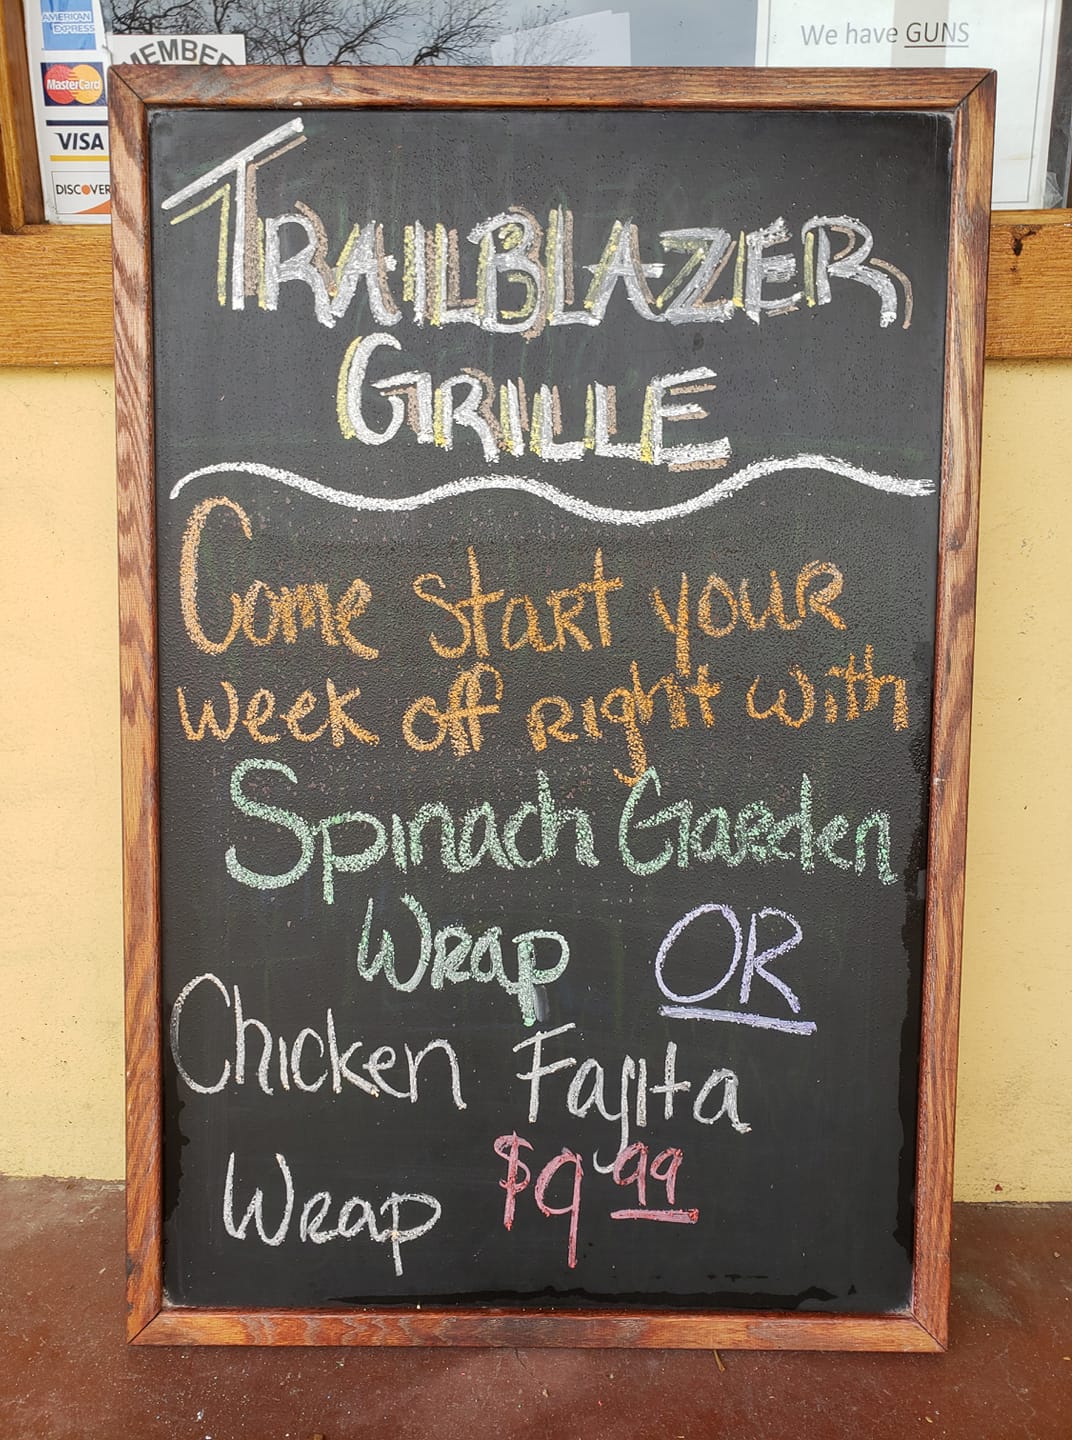 AMERICAN EXPRESS
MasterCard
VISA
DISCOVER
MEMBER
We have GUNS
TRAILBLAZER
GRILLE
Come start your
week off right with
Spinach Garden
Wrap OR
Chicken Fajita
Wrap $9.99